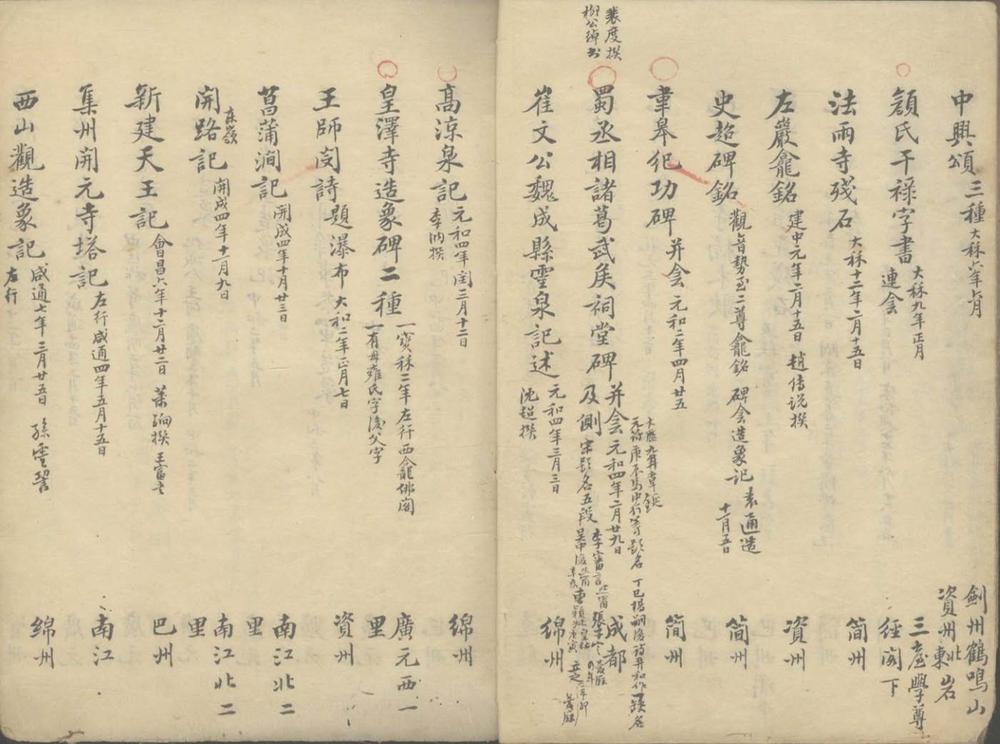 中興頌 三種 大秝六年六月 劍州鶴鳴山 資州北岩 東
顔氏干祿字書 大秝九年正月 連侌 三臺學尊經閣下
法雨寺殘石 大秝十二年二月十五日 簡州
左巖龕銘 建中元年二月十五日 趙傳說撰 資州
史超碑銘 觀音勢至二尊龕銘 碑侌造象記 素通造 十一月五日 簡州
韋皋紀功碑 并侌 元和二年四月廿五 簡州
裴度撰 柳公綽書
蜀丞相諸葛武矦祠堂碑 并侌 元和四年二月廿九日 及側 宋題名五段 成都
崔文公魏成縣靈泉記述 元和四年三月三日 沈超撰 綿州
高涼泉記 元和四年閏三月十二日 李納撰 綿州
皇澤寺造象碑二種 一寶秝二年左行西龕 一有母雍氏字後父字 廣元西一里
王師閔詩 題瀑布 大和二年正月七日 資州
菖蒲澗記 開成四年十月廿三日 南江北二里
開路記 開成四年十二月九日 南江北二里
新建天王記 會昌六年十二月廿二日 巴州
集州開元寺塔記 左行咸通四年五月十五日 南江
西山觀造象記 咸通七年三月廿五日 孫靈 左行 綿州